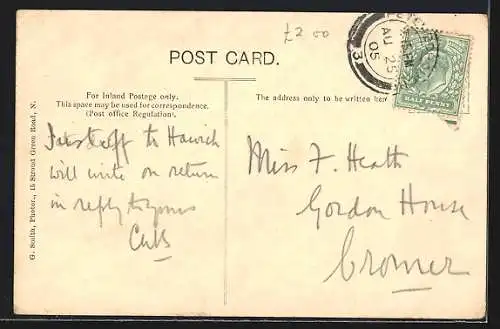 £2.00
POST CARD.
For Inland Postage only.
This space may be used for correspondence.
(Post office Regulation).
The address only to be written here
G. Smith, Photor., 15 Stroud Green Road, N.
Just off to Harwich
will write on return
in reply to yours
Miss F. Heath
Gordon House
Cromer
AU 25
05
3
HALF PENNY